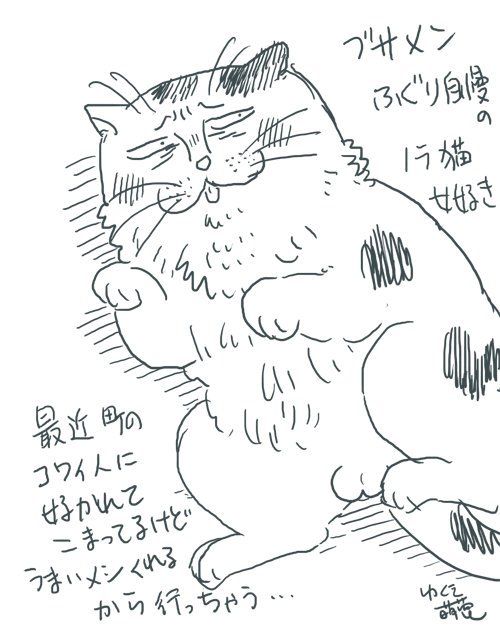 ブサメン
ふぐり自慢
の
ノラ猫
女好き
最近町の
コワイ人に
好かれて
こまってるけど
うまいメシくれる
から行っちゃう…